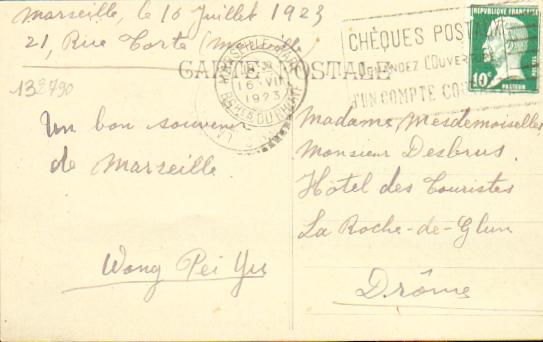 Marseille, le 16 Juillet 1923
21, Rue Torte (Marseille)
132790
CARTE POSTALE
16 - VII
1923
BCHES DU RHONE
CHÈQUES POSTAUX
DEMANDEZ L'OUVERTURE
D'UN COMPTE COURANT
RÉPUBLIQUE FRANÇAISE
10c
PASTEUR
Un bon souvenir
de Marseille.
Wong Pei Yu
Madame Mesdemoiselles
Monsieur Desbrus.
Hôtel des Touristes
La Roche-de-Glun
Drôme